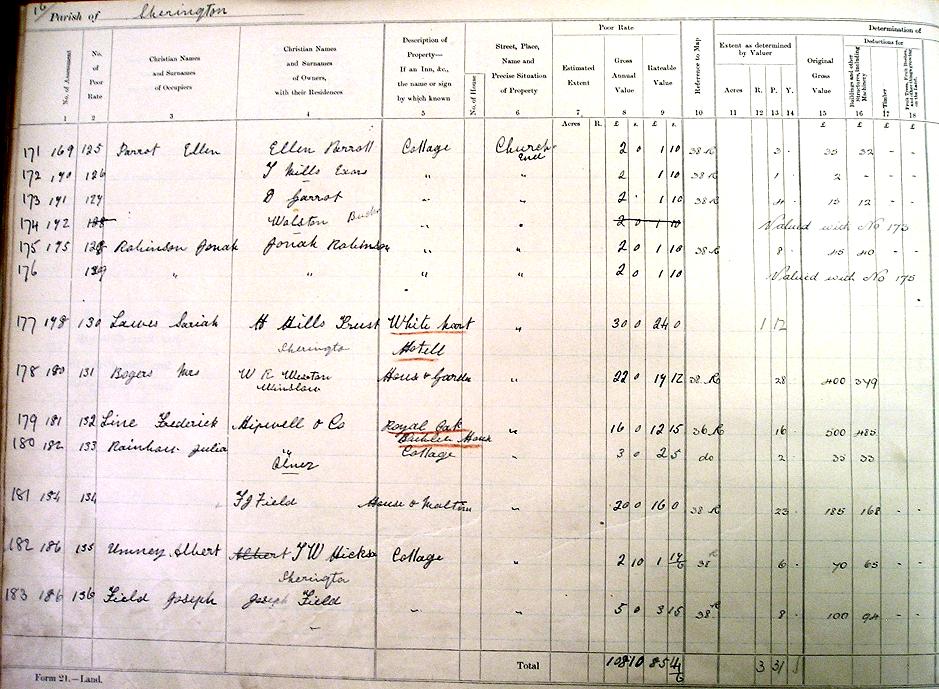 Parish of Sherington
Poor Rate
Determination of
No. of Assessment
No. of Poor Rate
Christian Names and Surnames of Occupiers
Christian Names and Surnames of Owners, with their Residences
Description of Property— If an Inn, &c., the name or sign by which known
No. of House
Street, Place, Name and Precise Situation of Property
Estimated Extent
Gross Annual Value
Rateable Value
Reference to Map
Extent as determined by Valuer
Acres R. P. Y.
Original Gross Value
Deductions for
Buildings and other Structures, including Machinery
Timber
1 2 3 4 5 6 7 8 9 10 11 12 13 14 15 16 17 18
Acres R. £ s. £ s. £ £ £ £
171 169 125 Parrot Ellen Ellen Perrott Cottage Church End 2 0 1 10 38 R 3 35 32 - -
172 170 126 T Mills Exors " " 2 1 10 38 R 1 2 - - -
173 171 127 D Parrot " " 2 1 10 38 R 4 15 12 - -
174 172 128 Walston " " 2 0 1 10 Valued with No 173
175 175 128 Robinson Jonah Jonah Robinson " " 2 0 1 10 38 R 8 45 40 - -
176 129 " " " " 2 0 1 10 Valued with No 175
177 178 130 Lawes Sariah H Hills Trust White hart " 30 0 24 0 1 12
Sherington Hotell
178 180 131 Bogers Mrs W E Weston House & Garden " 22 0 17 12 38 R 28 400 349
Winslow
179 181 132 Line Frederick Hipwell & Co Royal Oak " 16 0 12 15 36 R 16 500 485
Public House
180 182 133 Rainbow Julia " Cottage " 3 0 2 5 do 2 35 33
Olney
181 184 134 F J Field House & Malting " 20 0 16 0 38 R 23 185 168 - -
182 186 135 Umney Albert Albert T W Hickson Cottage " 2 10 1 17/6 38 R 6 70 65 - -
Sherington
183 186 136 Field Joseph Joseph Field " " 5 0 3 15 38 R 8 100 94 - -
Total 108 10 85 4/6 3 31
Form 21.—Land.